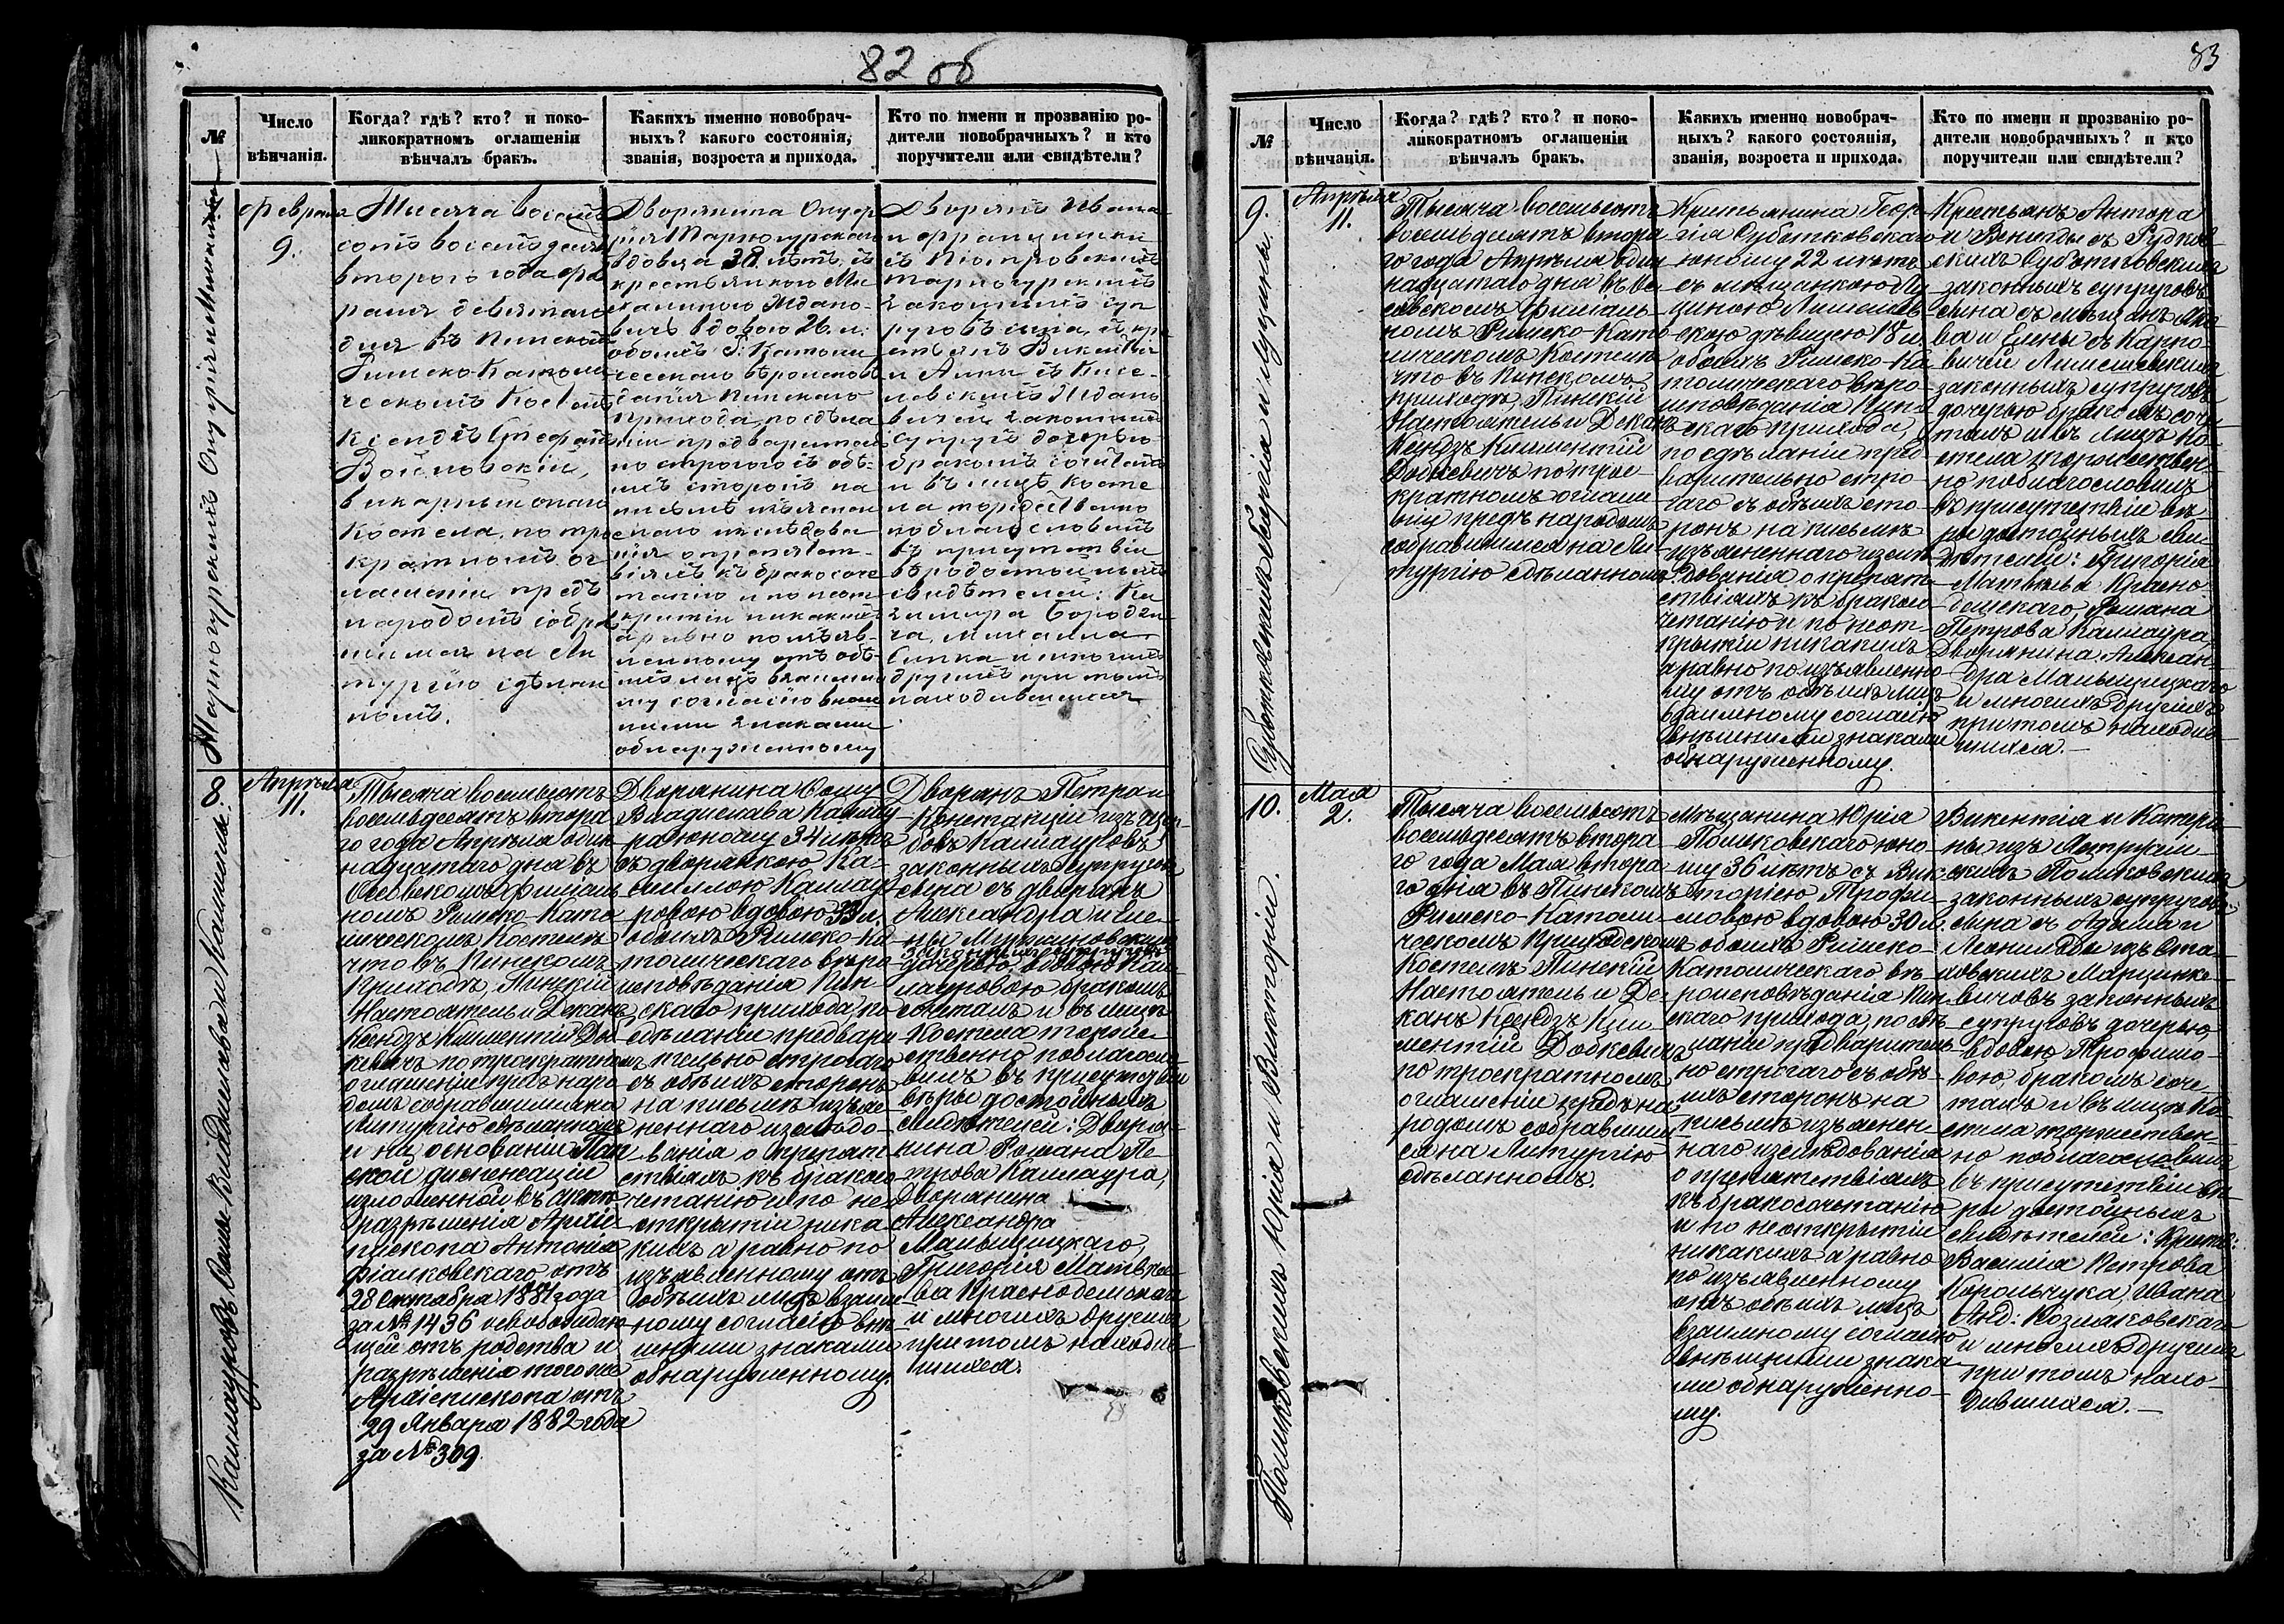 82 об
№
Число
вѣнчанія.
Когда? гдѣ? кто? и поко-
ликократномъ оглашеніи
вѣнчалъ бракъ.
Какихъ именно новобрач-
ныхъ? какого состоянія,
званія, возроста и прихода.
Кто по имени и прозванію ро-
дители новобрачныхъ? и кто
поручители или свидѣтели?
Февраля
9.
Тысяча восемь
сотъ восемьдесятъ
второго года Фев
раля девятаго
дня въ Пинскомъ
Римско-Католи
ческомъ Костелѣ
Ксендзъ Стефанъ
Войновскій,
викарный онаго
Костела, по трое
кратномъ ог
лашеніи предъ
народомъ собра
шимся на Ли
тургію сдѣлан
номъ.
Дворянина Онуф
рія Тарногурскаго
вдовца 38 лѣтъ, съ
крестьянкою Ми
халиною Ждано
вичъ вдовою 26 л.
обоихъ Р. Католи
ческаго вѣроисповѣ
данія Пинскаго
прихода, по сдѣла
ніи предваритель
но строгого съ обѣ-
ихъ сторонъ на
письмѣ изъясне
ннаго изслѣдова
нія о препятст-
віяхъ къ бракосоче
танію и по неот
крытіи никакихъ
а равно по изъяв-
ленному отъ обѣ-
ихъ лицъ взаимно
му согласію внѣш
ними знаками
обнаруженному
Дворянъ Ивана
и Франциски
съ Піотровскихъ
Тарногурскихъ
законныхъ суп
руговъ сына, съ кре
стьянъ Викентія
и Анны съ
Ждано
вичей законныхъ
супруг. дочерью
бракомъ сочеталъ
и въ лицѣ косте
ла торжественно
поблагословилъ
въ присутствіи
вѣродостойныхъ
свидѣтелей: Ка
зимира Бородзи
ча, Михаила
и многихъ
другихъ при томъ
находившихся
Тарногурскихъ Онуфрія и Михалины
8
Апрѣля
11.
Тысяча восемьсотъ
восемьдесятъ второ
го года Апрѣля один
надцатаго дня въ
Осовскомъ филіаль
номъ Римско-Като
лическомъ Костелѣ
что въ Пинскомъ
Приходѣ, Пинскій
Настоятель и Деканъ
Ксендзъ Климентій Доб
кевичъ по троекратномъ
оглашеніи предъ наро
домъ собравшимся на
Литургію сдѣланномъ
и на основаніи Пап
ской диспенсаціи
изложенной въ
разрѣшенія Архіе
пископа Антонія
Фіалковскаго отъ
28 Октября 1881 года
за № 1436 освобождаю
щей отъ родства и
разрѣшенія того же
Архіепископа отъ
29 Января 1882 года
за № 309.
Дворянина Ѳому
Владислава Каллау
ра юношу 34 лѣтъ
съ дворянкою Ка
миллою Каллау
ровою вдовою 33 л.
обоихъ Римско-Ка
толическаго вѣро
исповѣданія Пин
скаго прихода, по
сдѣланіи предвари
тельно строгаго
съ обѣихъ сторонъ
на письмѣ изъяс
неннаго изслѣдо
ванія о препят
ствіяхъ къ бракосо
четанію и по не
открытіи ника
кихъ а равно по
изъявленному отъ
обѣихъ лицъ взаим
ному согласію внѣ
шними знаками
обнаруженному.
Дворянъ Петра и
Констанціи изъ
Каллауровъ
законныхъ супруговъ
сына съ дворянъ
Александра и
законныхъ супруговъ
дочерью, вдовою Кал
лауровою, бракомъ
сочеталъ и въ лицѣ
Костела торже
ственно поблагосло
вилъ въ присутствіи
вѣры достойныхъ
свидѣтелей: Дворя
нина Романа Пе
трова Каллаура,
Дворянина
Александра
Малыщицкаго,
Григорія Матвѣе
ва Краснодемскаго
и многихъ другихъ
при томъ находив
шихся.
Каллауровъ Ѳомы Владислава и Камиллы.
83
№
Число
вѣнчанія.
Когда? гдѣ? кто? и поко-
ликократномъ оглашеніи
вѣнчалъ бракъ.
Какихъ именно новобрач-
ныхъ? какого состоянія,
званія, возроста и прихода.
Кто по имени и прозванію ро-
дители новобрачныхъ? и кто
поручители или свидѣтели?
9.
Апрѣля
11.
Тысяча восемьсотъ
восемьдесятъ второ
го года Апрѣля один
надцатаго дня въ Осо
совскомъ филіаль
номъ Римско-Като
лическомъ Костелѣ
что въ Пинскомъ
приходѣ, Пинскій
Настоятель и Деканъ
Ксендзъ Климентій
Добкевичъ по трое-
кратномъ оглаше
ніи предъ народомъ
собравшимся на Ли
тургію сдѣланномъ.
Крестьянина Геор
гія Суботковскаго
юношу 22 лѣтъ
съ мѣщанкою Лу
циною
скою дѣвицею 18 л.
обоихъ Римско-Ка
толическаго вѣро
исповѣданія Пин
скаго прихода,
по сдѣланіи пред
варительно стро
гаго съ обѣихъ сто
ронъ на письмѣ
изъясненнаго изслѣ
дованія о препят
ствіяхъ къ бракосо
четанію и по неот
крытіи никакихъ
а равно по изъявленно
му отъ обѣихъ лицъ
взаимному согласію
внѣшними знаками
обнаруженному.
Крестьянъ Антона
и Венигды съ Рудков
скихъ Суботковскихъ
законныхъ супруговъ
сына съ мѣщанъ
и Елены съ Карпо
вичей
законныхъ супруговъ
дочерью бракомъ соче
талъ и въ лицѣ Ко
стела торжествен
но поблагословилъ
въ присутствіи вѣ
ры достойныхъ сви
дѣтелей: Григорія
Матвѣева Красно
демскаго, Романа
Петрова Каллаура,
Дворянина Алексан
дра Малыщицкаго
и многихъ другихъ
при томъ находив
шихся.
Суботковскихъ Георгія и Луцины.
10.
Мая
2.
Тысяча восемьсотъ
восемьдесятъ второ
го года Мая второ
го дня въ Пинскомъ
Римско-Католи
ческомъ Приходскомъ
Костелѣ Пинскій
Настоятель и Де
канъ Ксендзъ Кли
ментій Добкевичъ
по троекратномъ
оглашеніи предъ на
родомъ собравшим
ся на Литургію
сдѣланномъ.
Мѣщанина Юрія
Полховскаго юно
шу 36 лѣтъ съ Вик
торіею Трофи
мовою вдовою 30 л.
обоихъ Римско-
Католическаго вѣ
роисповѣданія Пин
скаго прихода, по сдѣ
ланіи предваритель
но строгаго съ обѣ
ихъ сторонъ на
письмѣ изъяснен
наго изслѣдованія
о препятствіяхъ
къ бракосочетанію
и по неоткрытіи
никакихъ а равно
по изъявленному
отъ обѣихъ лицъ
взаимному согласію
внѣшними знака
ми обнаруженно
му.
Викентія и Катери
ны изъ
законныхъ супруговъ
сына съ Адама и
Леонилы изъ
Марцинке
вичовъ законныхъ
супруговъ дочерью,
вдовою Трофимо
вою, бракомъ соче
талъ и въ лицѣ Ко
стела торжествен
но поблагословилъ
въ присутствіи вѣ
ры достойныхъ
свидѣтелей: Крест:
Василія Петрова
Корольчука, Ивана
Анд: Козляковскаго
и многихъ другихъ
при томъ нахо
дившихся.
Юрія и Викторіи.